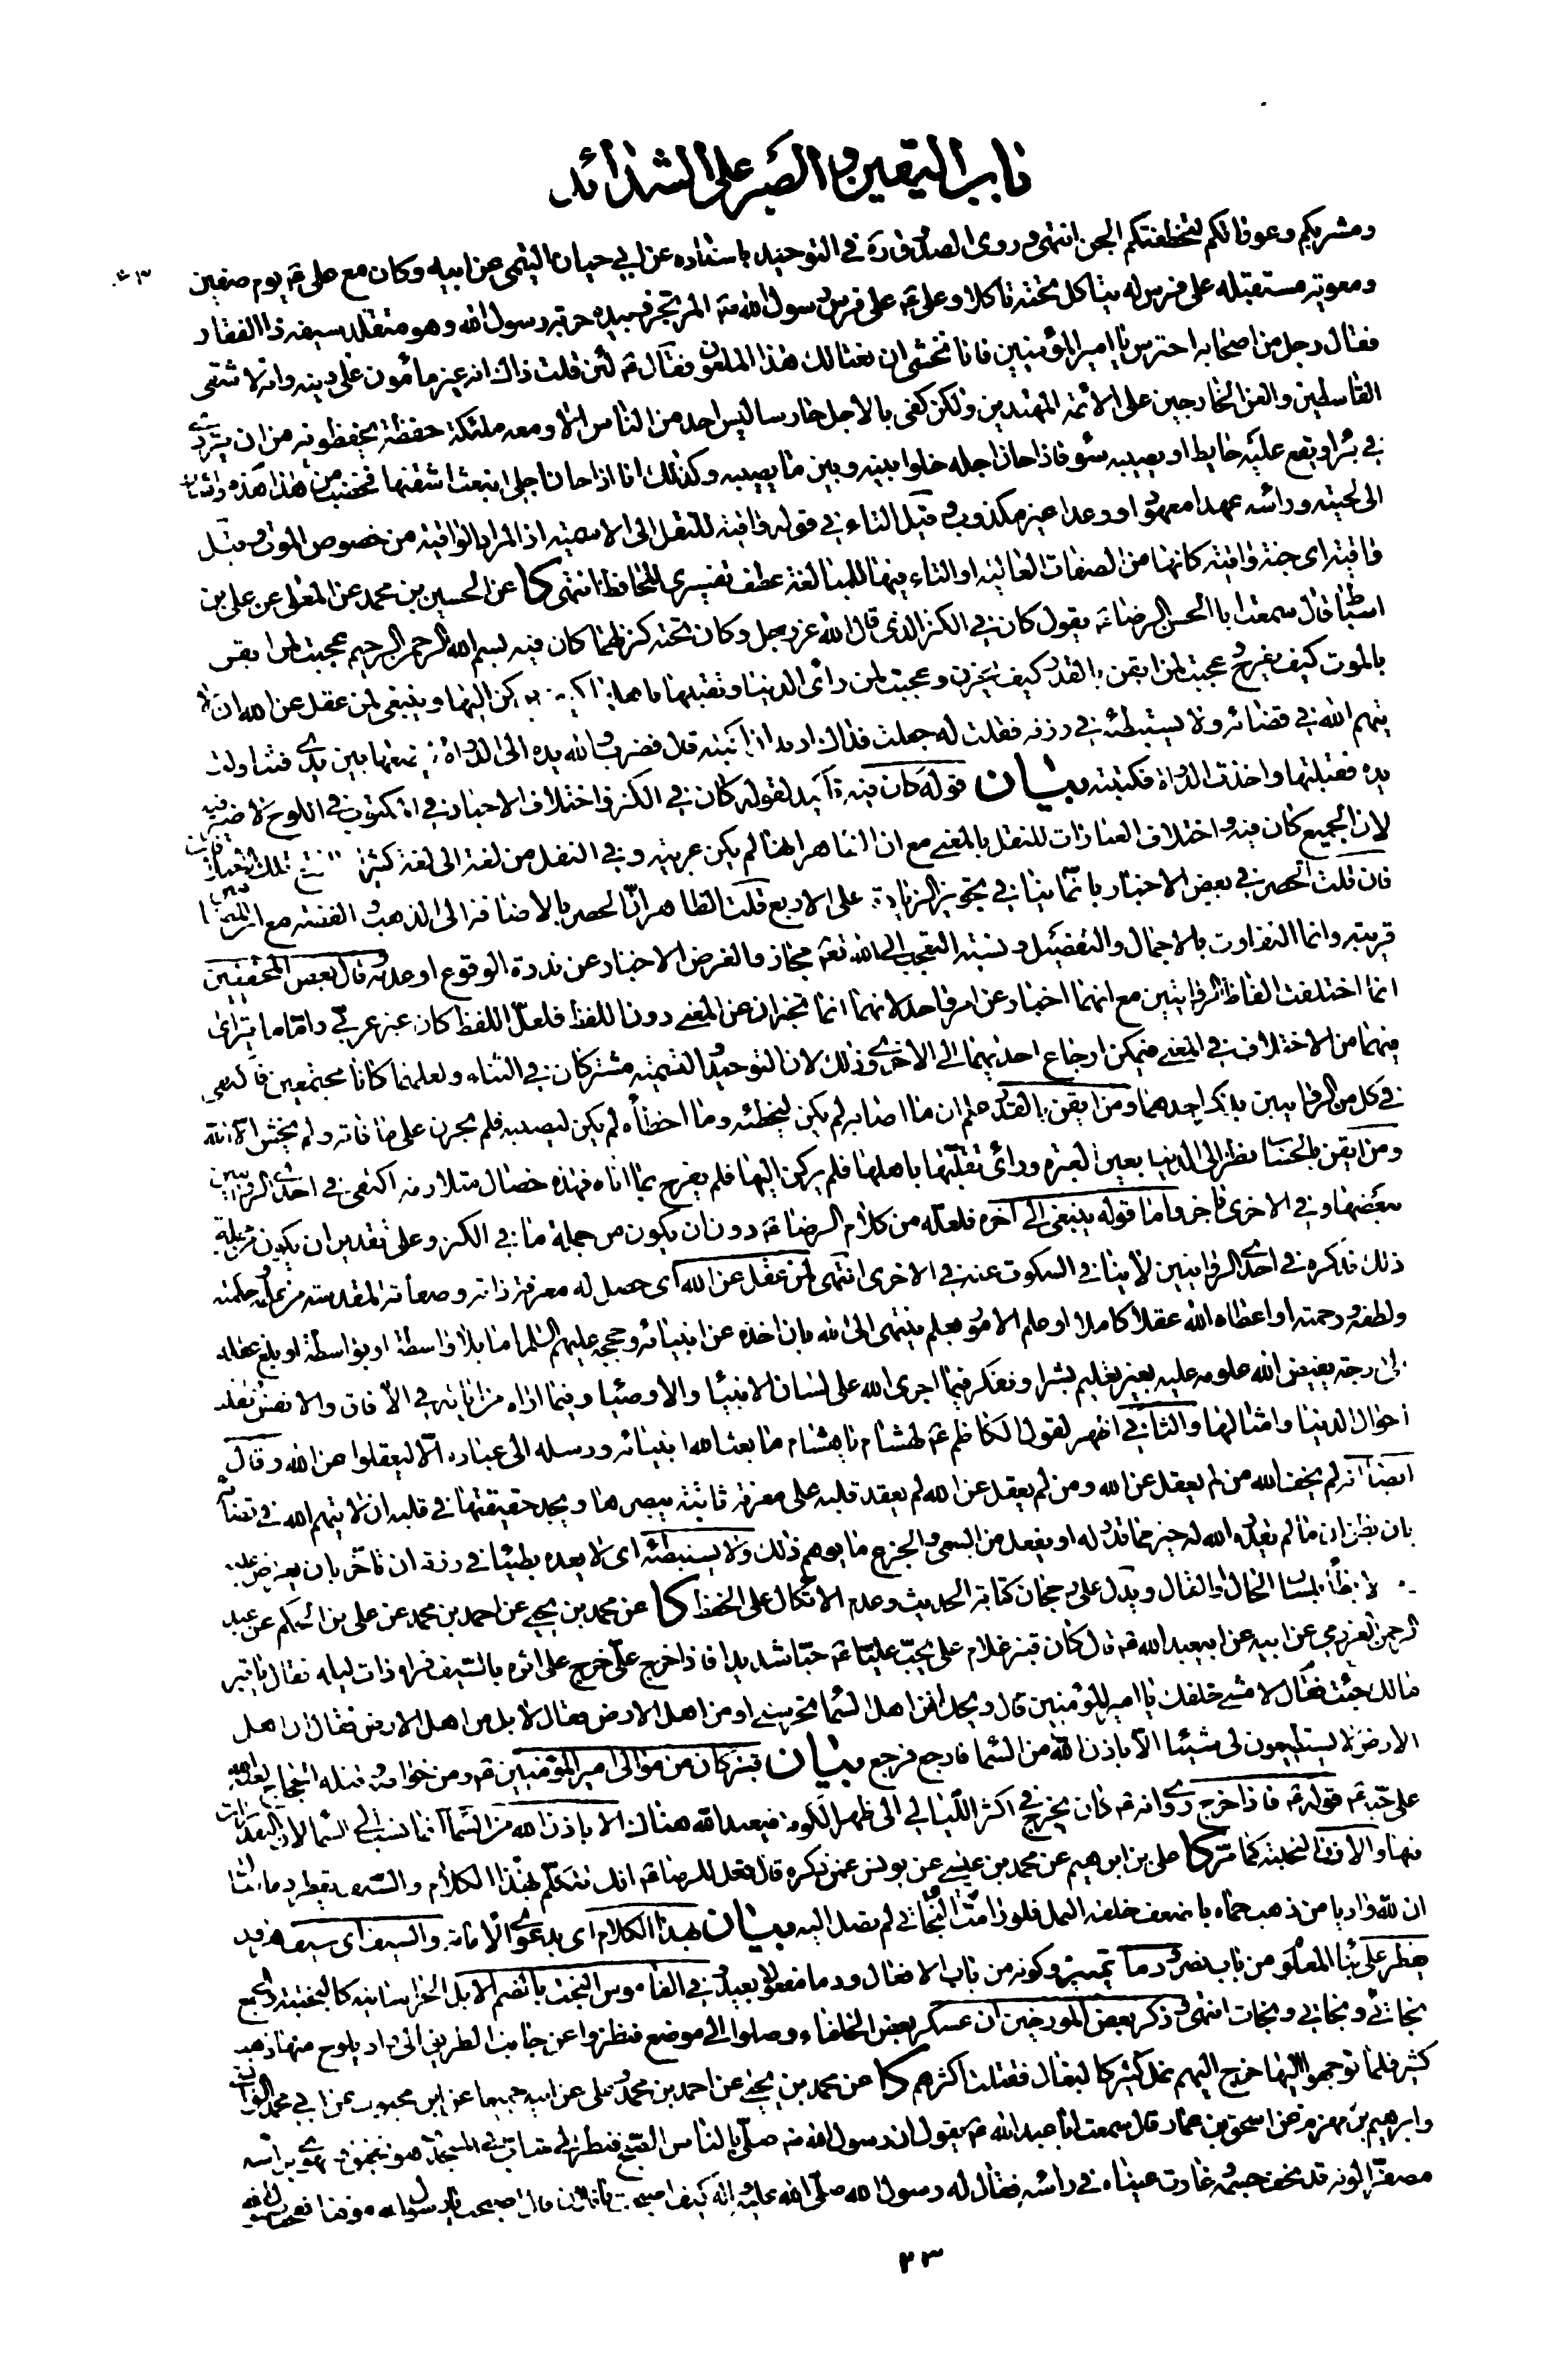 باب اليقين و الصبر على الشدائد
ومشربكم وعوفاتكم لتخطفتكم الجن انتهى وروى الصدوق ره في التوحيد باسناده عن ابي حيان التيمى عن ابيه وكان مع على ع يوم صفين
ومعوية مستقبله على فرس له يتاكل تحته تاكلا وعلى ع على فرس رسول الله ص المرتجز وبيده حربة رسول الله وهو متقلد سيفه ذا الفقار
فقال رجل من اصحابه احترس يا امير المؤمنين فانا نخشى ان يغتالك هذا الملعون فقال ع لئن قلت ذاك انه غير مأمون على دينه وانه لاشقى
القاسطين والعن الخارجين على الائمة المهتدين ولكن كفى بالاجل حارسا ليس احد من الناس الا ومعه ملئكة حفظة يحفظونه من ان يتردى
في بئر او يقع عليه حايط او يصيبه سوء فاذا حان اجله خلوا بينه وبين ما يصيبه وكذلك انا اذا حان اجلى انبعث اشقيها فخضب هذه من هذا واشار
الى لحيته ورأسه عهدا معهودا ووعدا غير مكذوب وقيل التاء في قوله واقية للنقل الى الاسمية اذ المراد بالواقية من خصوص الموت وقيل
واقية اى جنة واقية كانها من الصفات الغالبة او التاء فيها للمبالغة عطف تفسيرى للحافظ انتهى كا عن الحسين بن محمد عن المعلى عن على بن
اسباط قال سمعت ابا الحسن الرضا ع يقول كان في الكنز الذى قال الله عز وجل وكان تحته كنز لهما كان فيه بسم الله الرحمن الرحيم عجبت لمن ايقن
بالموت كيف يفرح و عجبت لمن ايقن بالقدر كيف يحزن وعجبت لمن رأى الدنيا وتقلبها باهلها كيف يركن اليها وينبغى لمن عقل عن الله ان لا
يتهم الله في قضائه ولا يستبطئه في رزقه فقلت له جعلت فداك اريد ان اكتبه قال فضرب والله يده الى الدواة ليضعها بين يدى فتناولت
يده فقبلتها واخذت الدواة فكتبته بيان قوله كان فيه تأكيد لقوله كان في الكنز واختلاف الاخبار في المكتوب في اللوح لا ضير فيه
لان الجميع كان فيه و اختلاف العبارات للنقل بالمعنى مع ان الظاهر انها لم يكن عربية وفي النقل من لغة الى لغة كثيرا تلك
فان قلت الحصر في بعض الاخبار بانما ينافي تجويز الزيادة على الاربع قلت الظاهر ان الحصر بالاضافة الى الذهب و الفضة مع
قريبة وانما التفاوت بالاجمال والتفصيل ونسبة التعجب الى الله تعالى مجاز والغرض الاخبار عن ندرة الوقوع او عدمه قال بعض المحققين
انما اختلفت الفاظ الروايتين مع انهما اخبار عن امر واحد لانهما انما تخبران عن المعنى دون اللفظ فلعل اللفظ كان غير عربى واما ما يترائ
فيهما من الاختلاف في المعنى فيمكن ارجاع احديهما الى الاخرى وذلك لان التوحيد و التسمية مشتركان في الثناء ولعلهما كانا مجتمعين فاكتفى
في كل من الروايتين بذكر احدهما ومن ايقن بالقدر علم ان ما اصابه لم يكن ليخطئه وما اخطأه لم يكن ليصيبه فلم يحزن على ما فاته ولم يخش الا الله
ومن ايقن بالحساب نظر الى الدنيا بعين العبرة ورأى تقلبها باهلها فلم يركن اليها فلم يفرح بما اتاه فهذه خصال متلازمة اكتفى في احدى الروايتين
ببعضها وفي الاخرى باخر واما قوله ينبغى الى آخره فلعله من كلام الرضا ع دون ان يكون من جملة ما في الكنز وعلى تقدير ان يكون من جملة
ذلك فذكره في احدى الروايتين لا ينافي السكوت عنه في الاخرى انتهى لمن عقل عن الله اى حصل له معرفة ذاته وصفاته المقدسة من علمه و حكمته
ولطفه و رحمته او اعطاه الله عقلا كاملا او علم الامور بعلم ينتهى الى الله بان اخذه عن انبيائه وحججه عليهم السلم اما بلا واسطة او بواسطة او بلغ عقله
الى درجة يفيض الله علومه عليه بغير تعليم بشر او تفكر فيما اجرى الله على لسان الانبياء والاوصياء وفيما اراه من آياته في الآفاق والانفس وتقلب
احوال الدنيا وامثالها والثاني اظهر لقول الكاظم ع لهشام يا هشام ما بعث الله انبيائه ورسله الى عباده الا ليعقلوا عن الله وقال
ايضا انه لم يخف الله من لم يعقل عن الله ومن لم يعقل عن الله لم يعقد قلبه على معرفة ثابتة يبصرها ويجد حقيقتها في قلبه ان لا يتهم الله في قضائه
بان يظن ان ما لم يقدره الله له خير مما قدر له او يفعل من السعى و الجزع ما يوهم ذلك ولا يستبطئه اى لا يعده بطيئا في رزقه ان تأخر بان يعترض عليه
بلسان الحال او القال ويدل على رجحان كتابة الحديث وعدم الاتكال على الحفظ كا عن محمد بن يحيى عن احمد بن محمد عن على بن الحكم عن عبد
الرحمن العرزمي عن ابيه عن ابيعبد الله ع قال كان قنبر غلام على يحب عليا ع حبا شديدا فاذا خرج على خرج على اثره بالسيف فراه ذات ليلة فقال يا قنبر
مالك فقال جئت لامشى خلفك يا امير المؤمنين قال ويحك امن اهل السماء تحرسنى او من اهل الارض فقال لا بل من اهل الارض فقال ان اهل
الارض لا يستطيعون لى شيئا الا باذن الله من السماء فارجع فرجع بيان قنبر كان من موالى امير المؤمنين ع ومن خواصه قتله الحجاج لعنه الله
على حبه ع قوله ع فاذا خرج روى انه ع كان يخرج في اكثر الليالى الى ظهر الكوفة فيعبد الله هناك الا باذن الله من السماء انما نسب الى السماء لان التقديرات
فيها والاذن التخلية كما مر كا على بن ابرهيم عن محمد بن عيسى عن يونس عمن ذكره قال قيل للرضا ع انك تتكلم بهذا الكلام والسيف يقطر دما فقال
ان لله واديا من ذهب حماه باضعف خلقه النمل فلو رامته البخاتي لم تصل اليه بيان بهذا الكلام اى بدعوى الامامة والسيف اى سيف هرون
يقطر على بناء المعلوم من باب نصر و دما تميز وكونه من باب الافعال ودما مفعولا بعيد و في القاموس البخت بالضم الابل الخراسانية كالبختية والجمع
بخاتي و بخاتى وبخات انتهى و ذكر بعض المورخين ان عسكر بعض الخلفاء وصلوا الى موضع فنظروا عن جانب الطريق الى واد يلوح منها ذهب
كثير فلما توجهوا اليها خرج اليهم نمل كثير كالبغال فقتلت اكثرهم كا عن محمد بن يحيى عن احمد بن محمد و على عن ابيه جميعا عن ابن محبوب عن ابي محمد الوابشى
وابرهيم بن مهزم عن اسحق بن عمار قال سمعت ابا عبد الله ع يقول ان رسول الله ص صلى بالناس الصبح فنظر الى شاب في المسجد وهو يخفق و يهوى برأسه
مصفرا لونه قد نحف جسمه و غارت عيناه في رأسه فقال له رسول الله صلى الله عليه و اله كيف اصبحت يا فلان قال اصبحت يا رسول الله موقنا فعجب رسول الله
٢٣